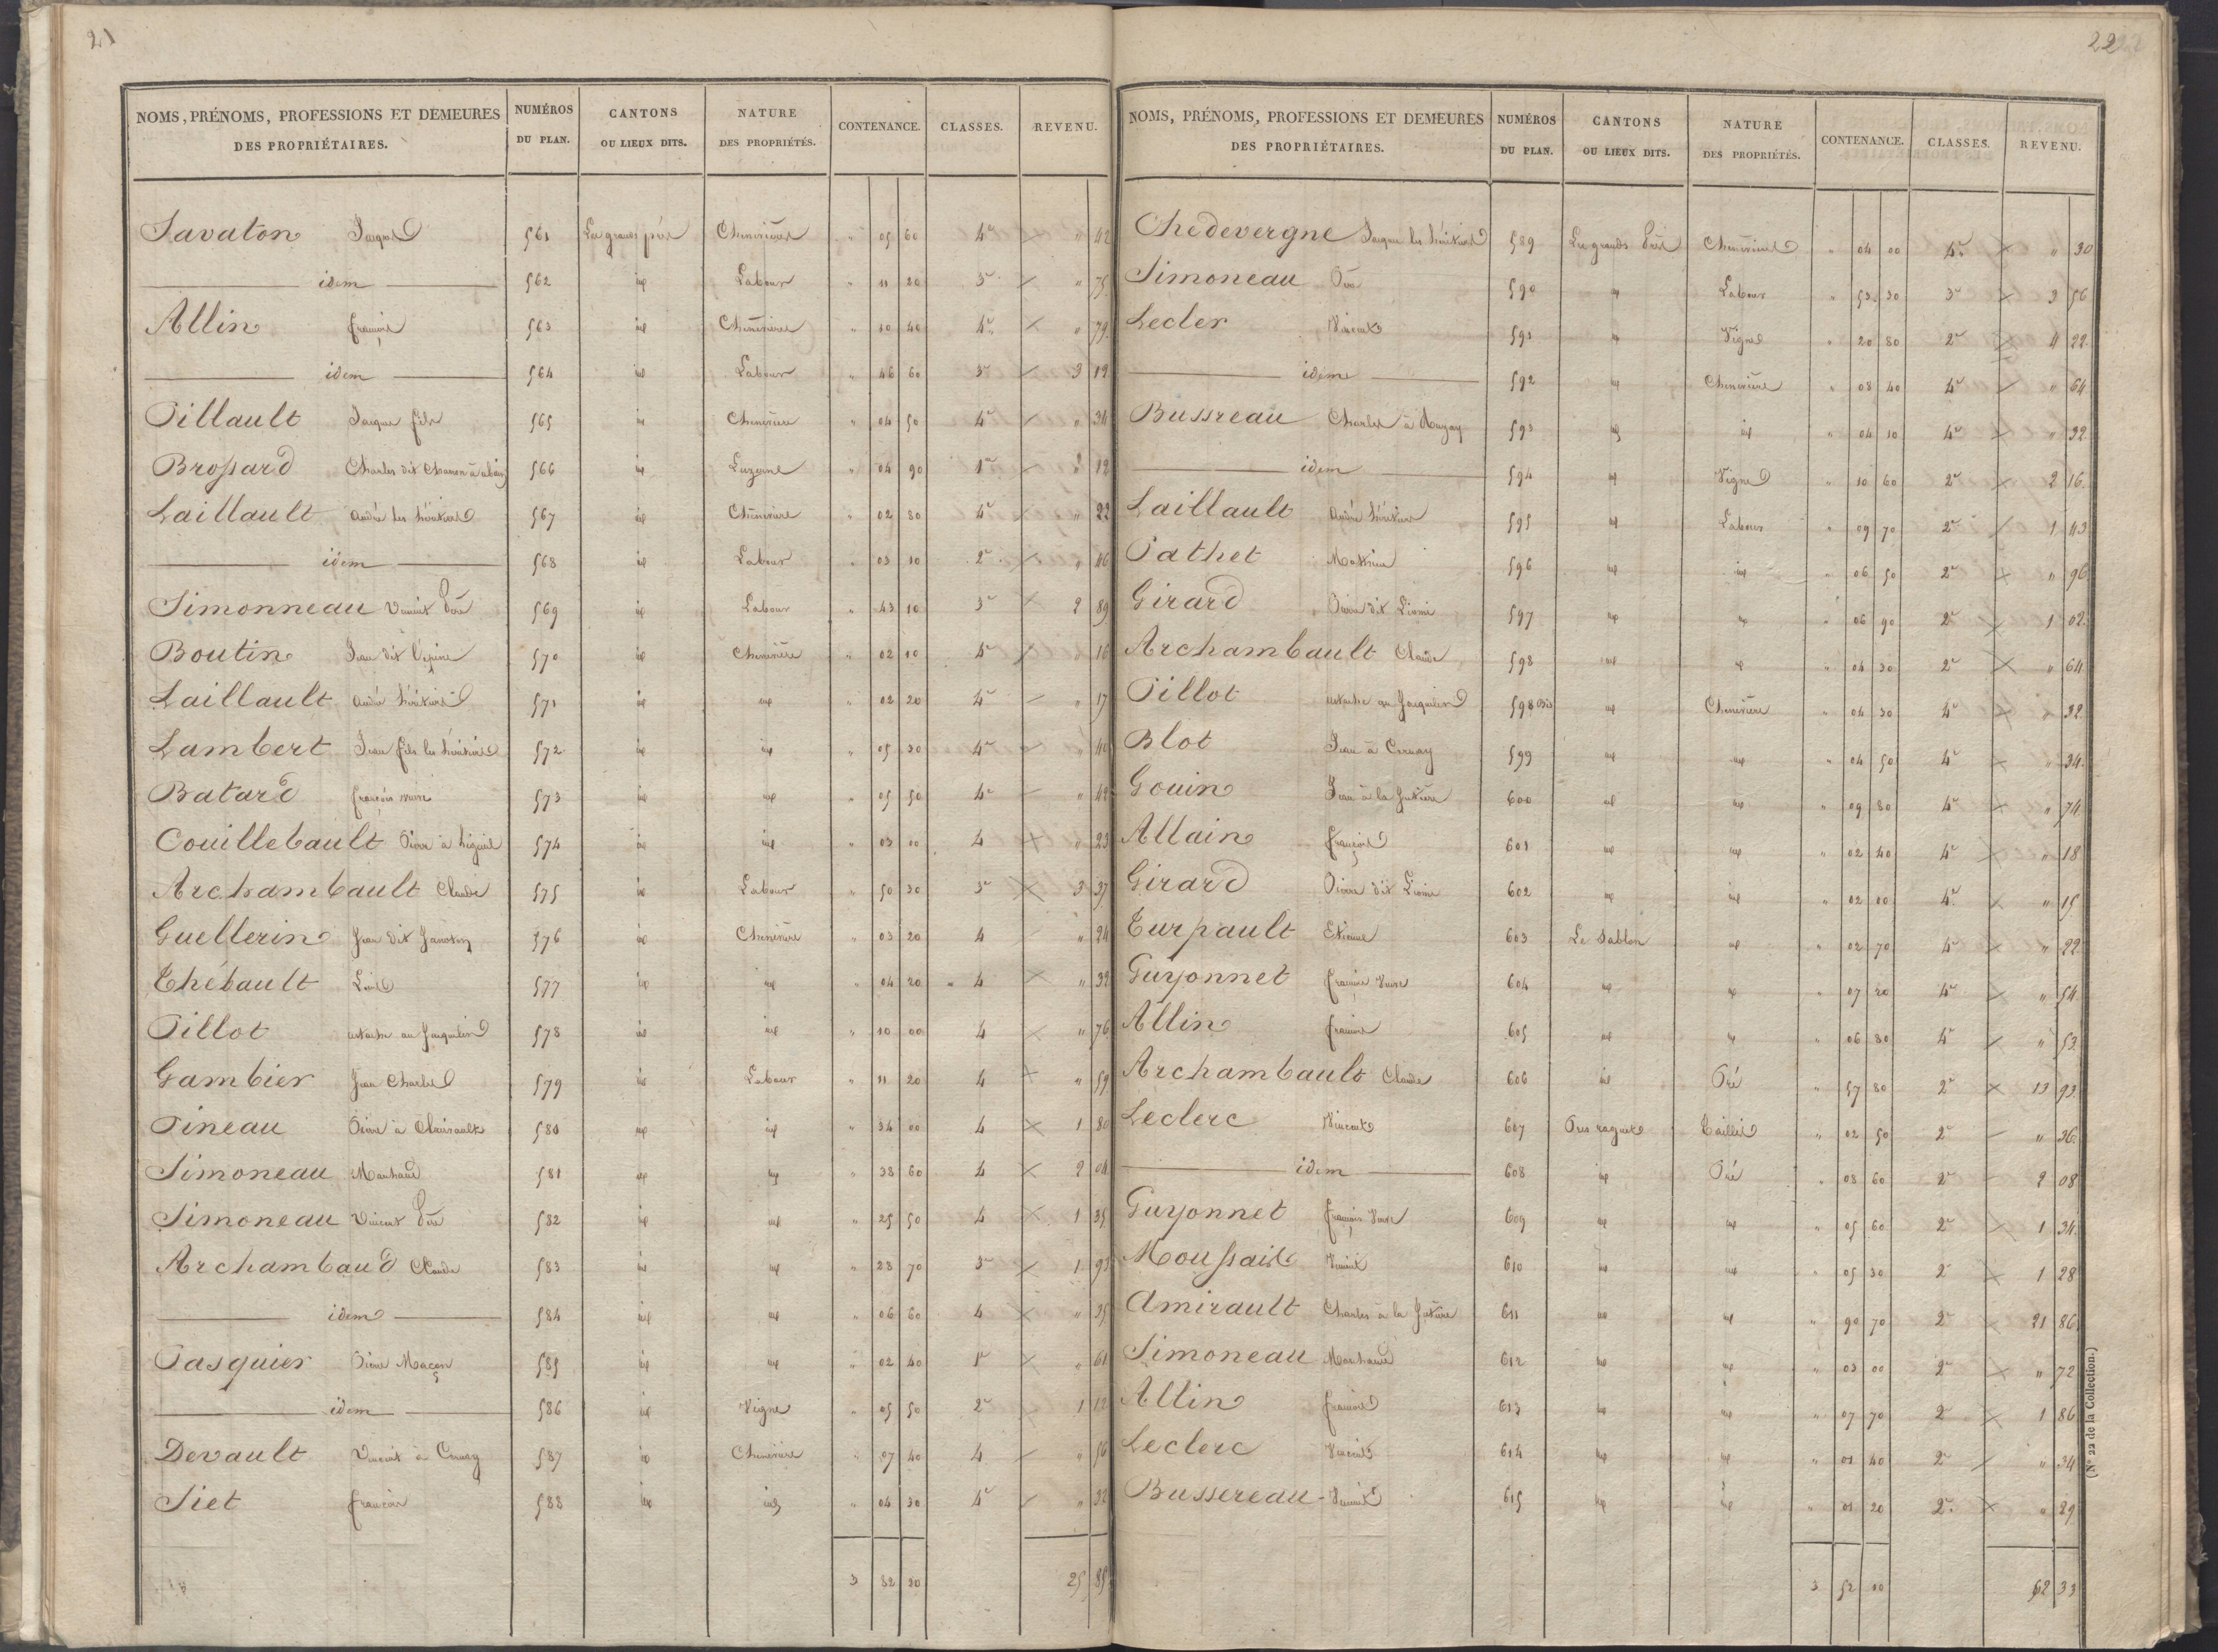 21
NOMS, PRÉNOMS, PROFESSIONS ET DEMEURES DES PROPRIÉTAIRES. NUMÉROS DU PLAN. CANTONS OU LIEUX DITS. NATURE DES PROPRIÉTÉS. CONTENANCE. CLASSES. REVENU.
Savaton Jacques 561 Les grands prés Chenevière " 05 60 4e " 42
idem 562 id Labour " 11 20 3e " 75
Allin françois 563 id Chenevière " 10 40 4e " 79
idem 564 id Labour " 46 60 3e 3 12
Pillault Jacques fils 565 id Chenevière " 04 50 4e " 34
Brossard Charles dit Chanon 566 id Luzerne " 04 90 1re 12
Laillault André les héritiers 567 id Chenevière " 02 80 4e " 22
idem 568 id Labour " 03 10 2e " 46
Simonneau Vincent Père 569 id Labour " 43 10 3e 2 89
Boutin Jean dit l'épine 570 id Chenevière " 02 10 4e " 16
Laillault André héritiers 571 id id " 02 20 4e " 17
Lambert Jean fils les héritiers 572 id id " 05 30 4e " 40
Batard françois veuve 573 id id " 05 50 4e " 42
Couillebault Pierre à 574 id id " 03 10 4 " 23
Archambault Claude 575 id Labour " 50 30 3e 3 37
Guellerin Jean dit 576 id Chenevière " 03 20 4 " 24
Thébault Louis 577 id id " 04 20 4 " 32
Pillot au Jacquelin 578 id id " 10 00 4 " 76
Gambier Jean Charles 579 id Labour " 11 20 4 " 59
Pineau Pierre à 580 id id " 34 00 4 1 80
Simoneau Marchand 581 id id " 38 60 4 2 04
Simoneau Vincent Père 582 id id " 25 50 4 1 35
Archambaud Claude 583 id id " 28 70 3e 1 93
idem 584 id id " 06 60 4 " 35
Pasquier Pierre Maçon 585 id id " 02 40 1re " 61
idem 586 id Vigne " 05 50 2e 1 12
Devault Vincent à Cernay 587 id Chenevière " 07 40 4 " 56
Siet françois 588 id id " 04 30 4e " 32
3 82 30 25 85
22
NOMS, PRÉNOMS, PROFESSIONS ET DEMEURES DES PROPRIÉTAIRES. NUMÉROS DU PLAN. CANTONS OU LIEUX DITS. NATURE DES PROPRIÉTÉS. CONTENANCE. CLASSES. REVENU.
Chedevergne Jacques les héritiers 589 Les grands Prés Chenevière " 04 00 4e " 30
Simoneau Père 590 id Labour " 53 30 3e 3 56
Lecler Vincent 591 id Vigne " 20 80 2e 4 22
idem 592 id Chenevière " 08 40 4e " 64
Bussreau Charles à 593 id id " 04 10 4e " 32
idem 594 id Vigne " 10 60 2e 2 16
Laillault André héritiers 595 id Labour " 09 70 2e 1 43
Pathet Mathieu 596 id id " 06 50 2e " 96
Girard Pierre dit 597 id id " 06 90 2e 1 02
Archambault Claude 598 id id " 04 30 2e " 64
Pillot au Jacquelin 598 bis id Chenevière " 04 30 4e " 32
Blot Jean à Cernay 599 id id " 04 50 4e " 34
Gouin Jean à la 600 id id " 09 80 4e " 74
Allain françois 601 id id " 02 40 4e " 18
Girard Pierre dit 602 id id " 02 00 4e " 15
Turpault Etienne 603 Le Sablon id " 02 70 4e " 22
Guyonnet françois Veuve 604 id id " 07 20 4e " 54
Allin françois 605 id id " 06 80 4e " 53
Archambault Claude 606 id Pré " 57 80 2e 13 93
Leclerc Vincent 607 Taillis " 02 50 2e " 36
idem 608 id Pré " 08 60 2e 2 08
Guyonnet françois Veuve 609 id id " 05 60 2e 1 34
Moussait Vincent 610 id id " 05 30 2e 1 28
Amirault Charles à la 611 id id " 90 70 2e 21 86
Simoneau Marchand 612 id id " 03 00 2e " 72
Allin françois 613 id id " 07 70 2 1 86
Leclerc Vincent 614 id id " 01 40 2e " 34
Bussereau Vincent 615 id id " 01 20 2e " 29
3 52 10 62 33
(N° 22 de la Collection.)